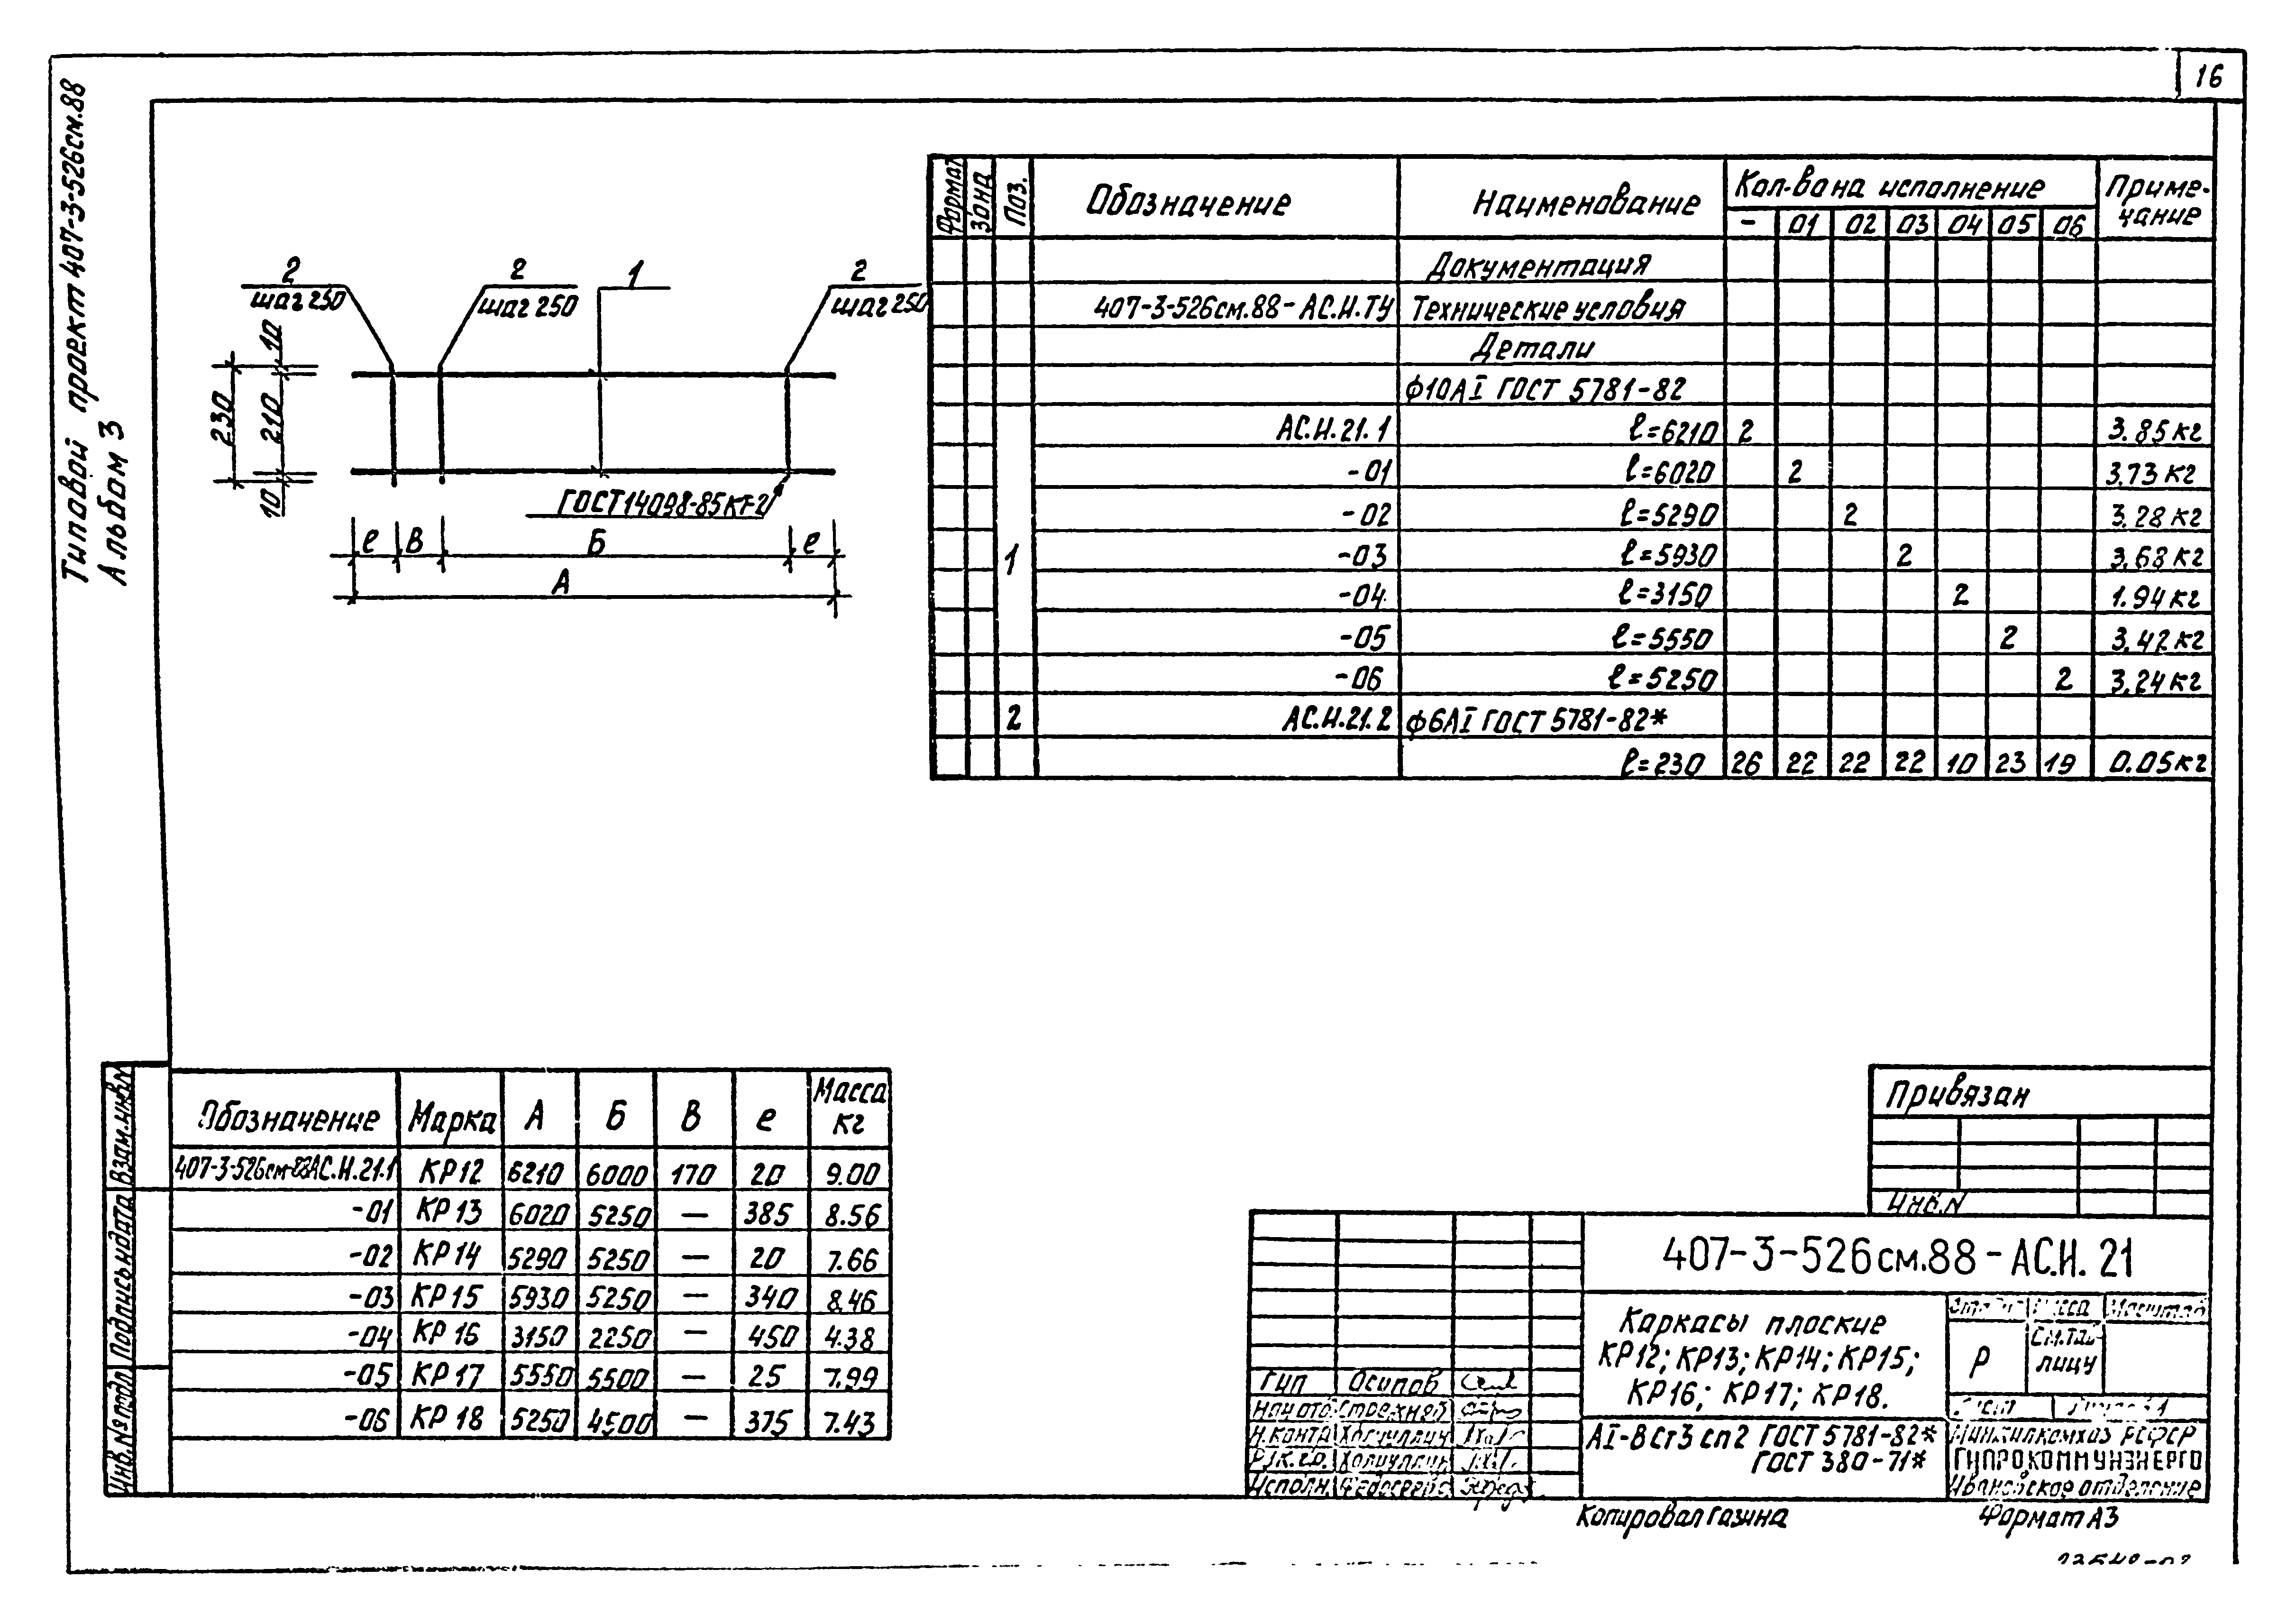 16
Типовой проект 407-3-526см.88
Альбом 3
2
шаг 250
2
шаг 250
1
2
шаг 250
10
210
230
10
ГОСТ 14098-85 КТ-2
е В Б е
А
Формат Зона Поз. Обозначение Наименование Кол-во на исполнение Приме-
чание
- 01 02 03 04 05 06
Документация
407-3-526см.88-АС.И.ТУ Технические условия
Детали
ф10АI ГОСТ 5781-82
АС.И.21.1 ℓ=6210 2 3.85кг
-01 ℓ=6020 2 3.73кг
-02 ℓ=5290 2 3.28кг
1 -03 ℓ=5930 2 3.68кг
-04 ℓ=3150 2 1.94кг
-05 ℓ=5550 2 3.42кг
-06 ℓ=5250 2 3.24кг
2 АС.И.21.2 ф6АI ГОСТ 5781-82*
ℓ=230 26 22 22 22 10 23 19 0.05кг
Обозначение Марка А Б В е Масса
кг
407-3-526см-88АС.И.21.1 КР12 6210 6000 170 20 9.00
-01 КР13 6020 5250 — 385 8.56
-02 КР14 5290 5250 — 20 7.66
-03 КР15 5930 5250 — 340 8.46
-04 КР16 3150 2250 — 450 4.38
-05 КР17 5550 5500 — 25 7.99
-06 КР18 5250 4500 — 375 7.43
Взам.инв.N
Подпись и дата
Инв.№ подл.
Привязан
Инв.N
407-3-526см.88-АС.И.21
Каркасы плоские
КР12; КР13; КР14; КР15;
КР16; КР17; КР18.
Масса Масштаб
Р См.таб-
лицу
Лист
ГИП Осипов
Нач.отд
Н.контр
Рук.гр.
Исполн.
АI-ВСт3сп2 ГОСТ 5781-82*
ГОСТ 380-71*
Минжилкомхоз РСФСР
ГИПРОКОММУНЭНЕРГО
Ивановское отделение
Копировал Газина Формат А3